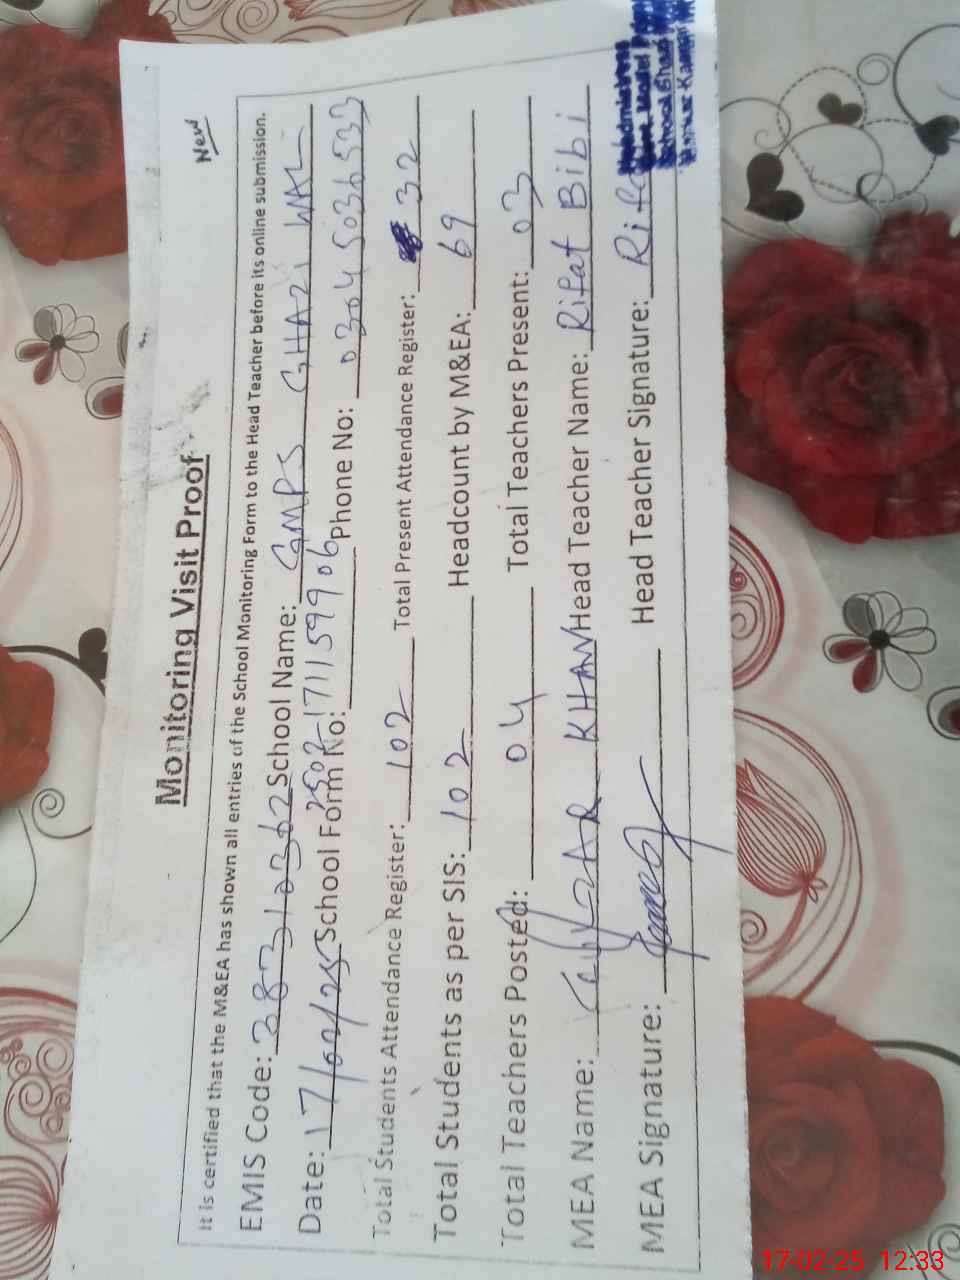 New
Monitoring Visit Proof
It is certified that the M&EA has shown all entries of the School Monitoring Form to the Head Teacher before its online submission.
EMIS Code: 38310362 School Name: GMPS GHAZI WAL
Date: 17/02/25 School Form No: 2502171159906 Phone No: 03045036533
Total Students Attendance Register: 102 Total Present Attendance Register: 32
Total Students as per SIS: 102 Headcount by M&EA: 69
Total Teachers Posted: 04 Total Teachers Present: 03
MEA Name: GULZAR KHAN Head Teacher Name: Rifat Bibi
MEA Signature: Head Teacher Signature: Rifat
Headmistress
Govt. Model
School Ghazi
17-02-25 12:33